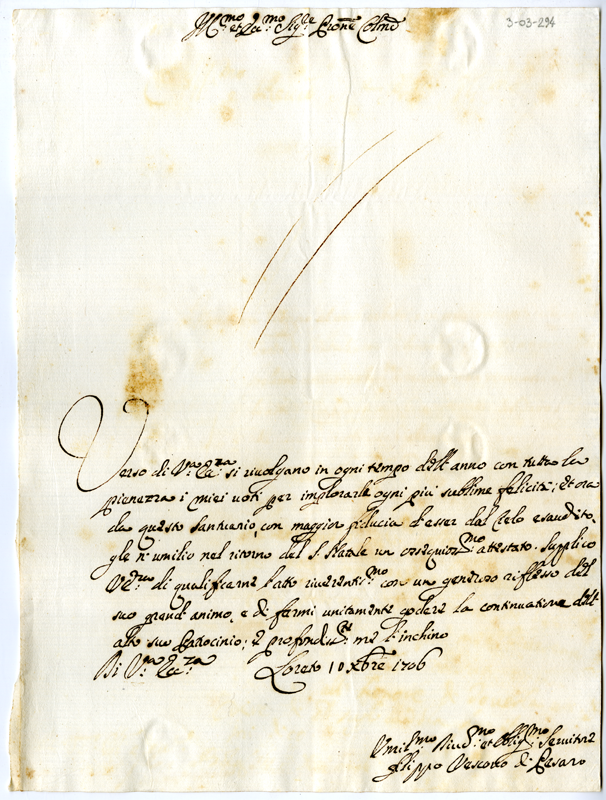 3-03-294
Ill.mo et Ecc.mo Sig.re Prone Colmo
Verso di V.ra Ecc.za si rivolgano in ogni tempo dell'anno con tutta la
pienezza i miei voti per implorarle ogni più sublime felicità; et ora
da questo Santuario, con maggior fiducia d'esser dal Cielo esaudito,
gle n'umilio nel ritorno del S. Natale un ossequios.mo attestato. Supplico
V.E. di qualificarne l'atto riverentis.mo con un generoso riflesso del
suo grand'animo, e di farmi unitamente godere la continuatione dell'
alto suo Padrocinio; e profondis.te me l'inchino
Di V.ra Ecc.za Loreto 10 Xbre 1706
Umil.mo Divd.mo et Obbl.mo Servitore
Filippo Vescovo di Pesaro